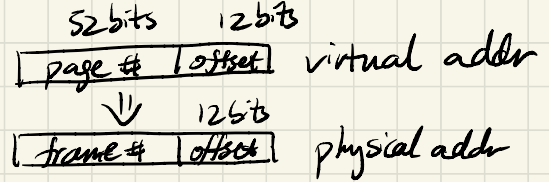 52bits 12bits
page # offset virtual addr
12bits
frame # offset physical addr